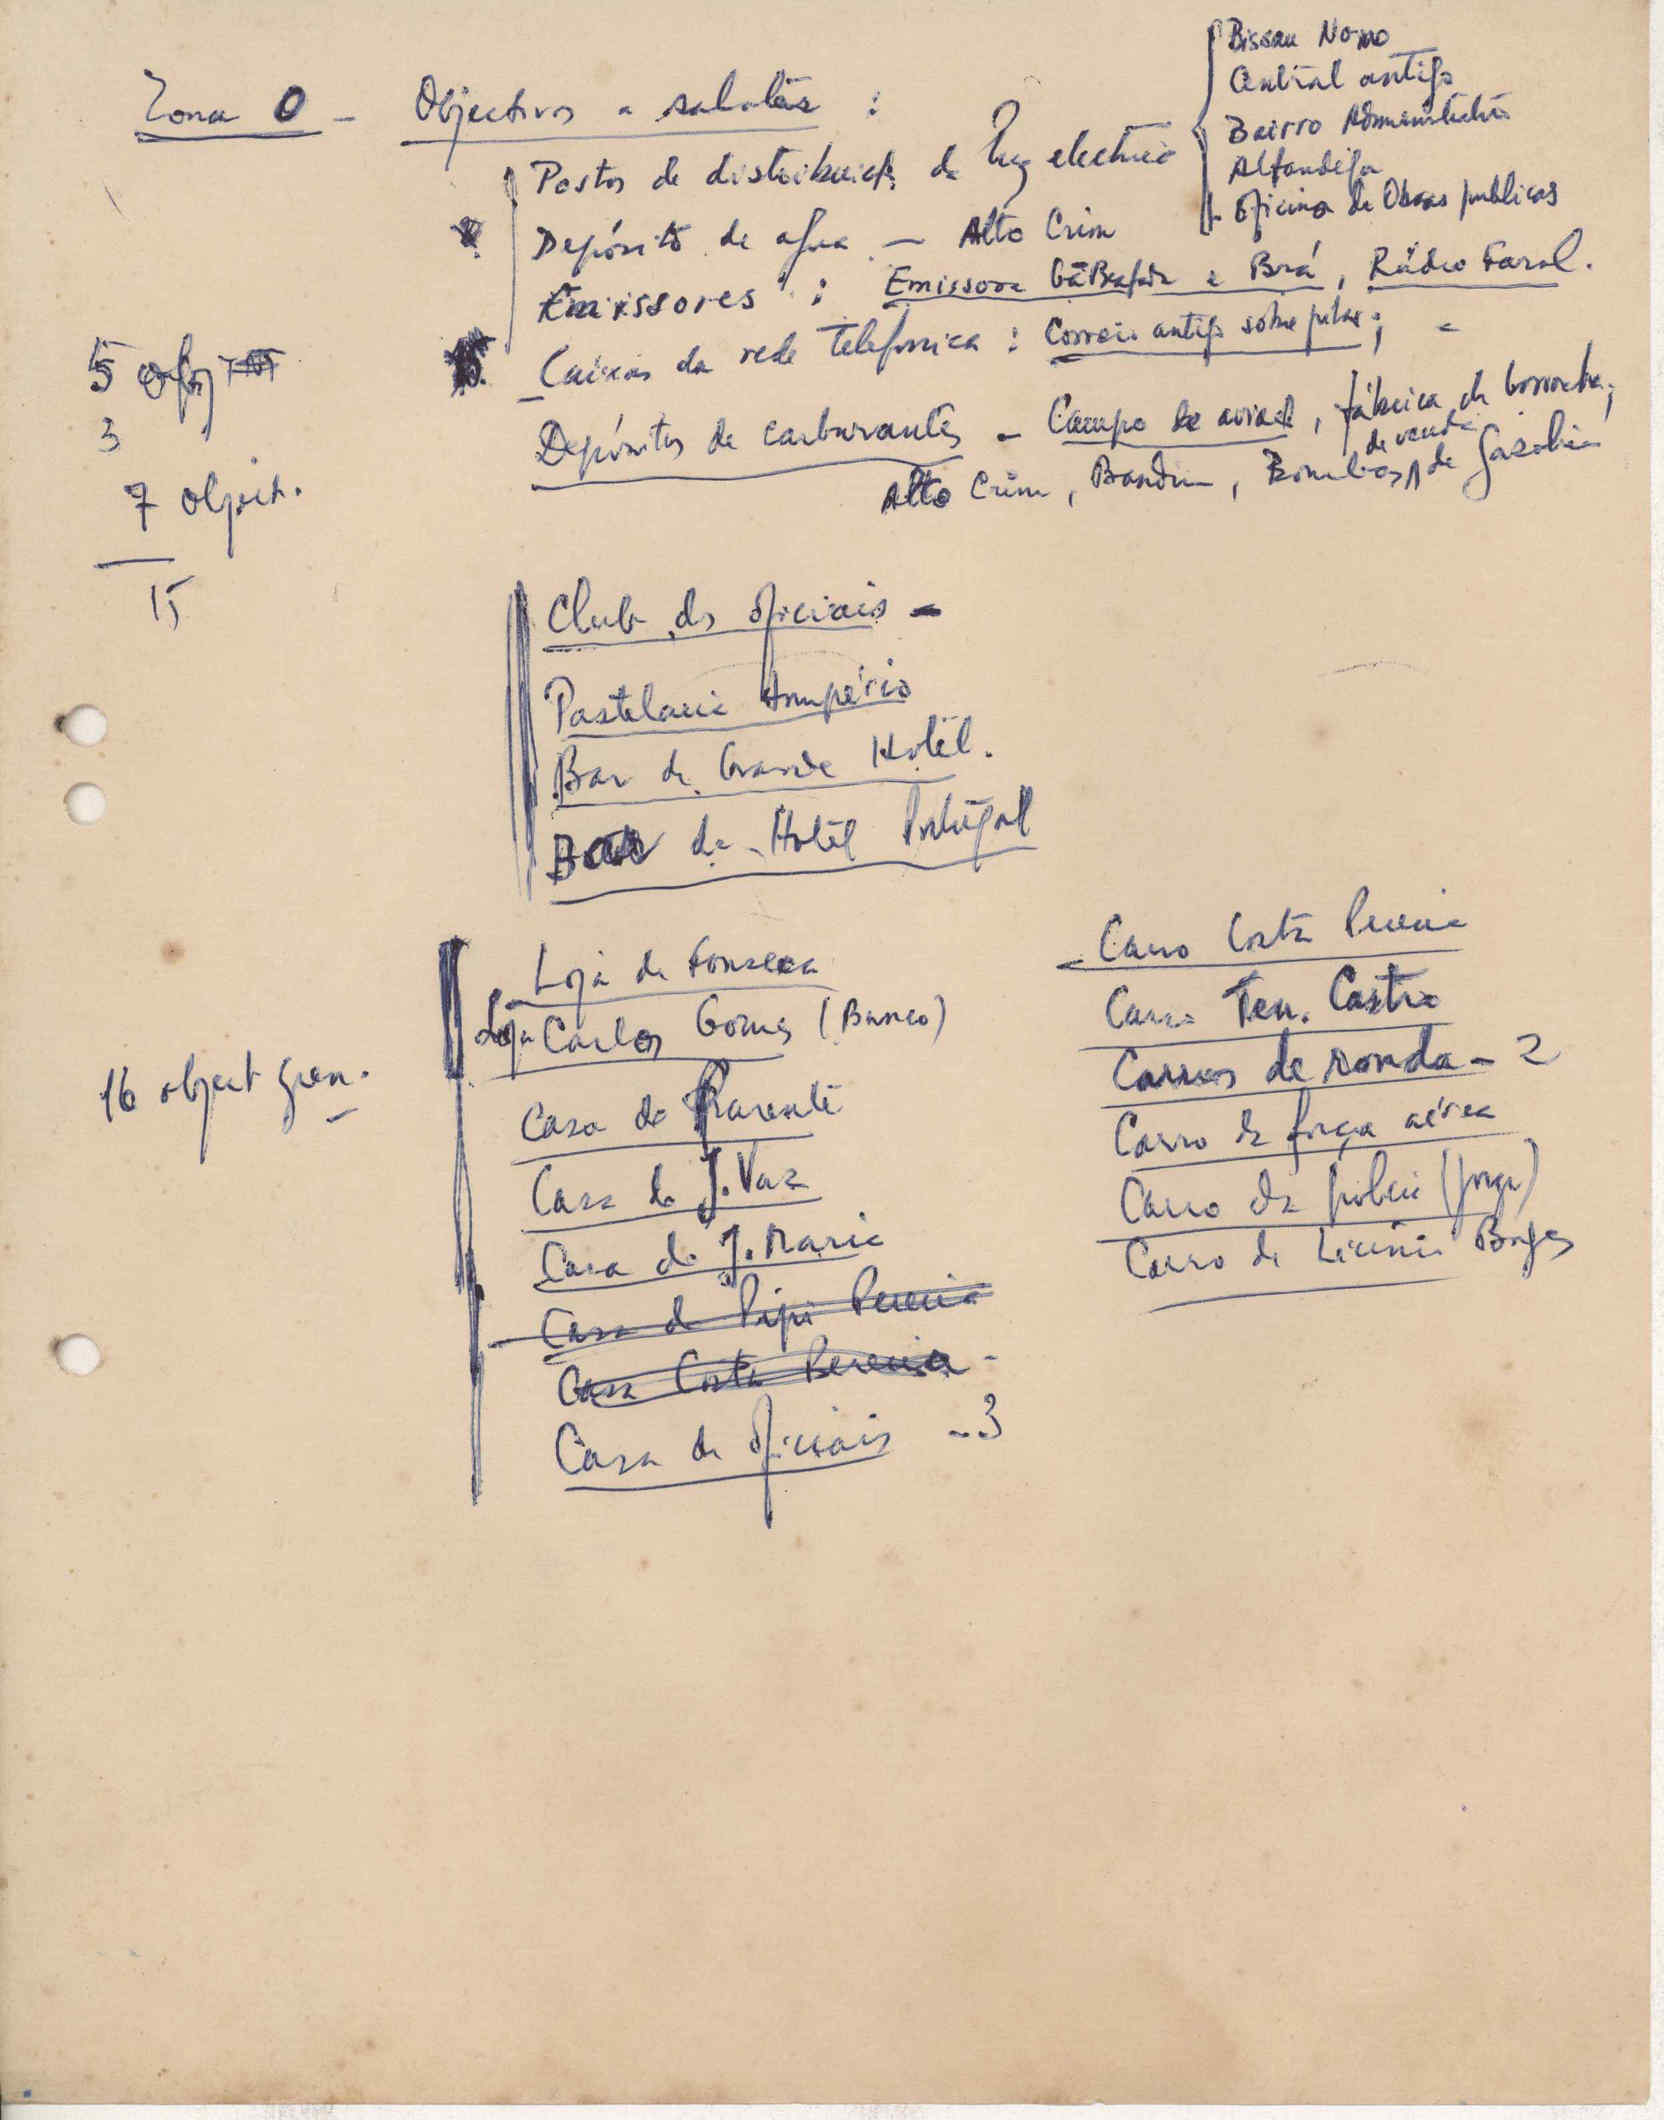 Zona 0 - Objectivos a sabotar :
Postos de distribuição de luz electrica
Bissau Novo
Central antiga
Bairro Administrativo
Alfandega
Oficina de Obras publicas
Depósito de agua - Alto Crim
Emissores : Emissora e Brá, Rádio Farol.
Caixas da rede telefonica : Correio antigo sobre pilar ; -
Depósitos de carburantes - Campo de aviação, fábrica de borracha ;
Alto Crim, Bandim, Bombas de venda de gasolina
5 obj
3
7 object.
15
Club de oficiais -
Pastelaria Império
Bar do Grande Hotel.
Bar do Hotel Portugal
16 object gren.
Loja do Fonseca
Loja Carlos Gomes (Banco)
Casa do Parente
Casa do J. Vaz
Casa do J. Maria
Casa do Pipi Pereira
Casa Costa Pereira -
Casa de oficiais - 3
Carro Costa Pereira
Carro Ten. Castro
Carros de ronda - 2
Carro da força aérea
Carro da policia (jeep)
Carro de Licinio Borges